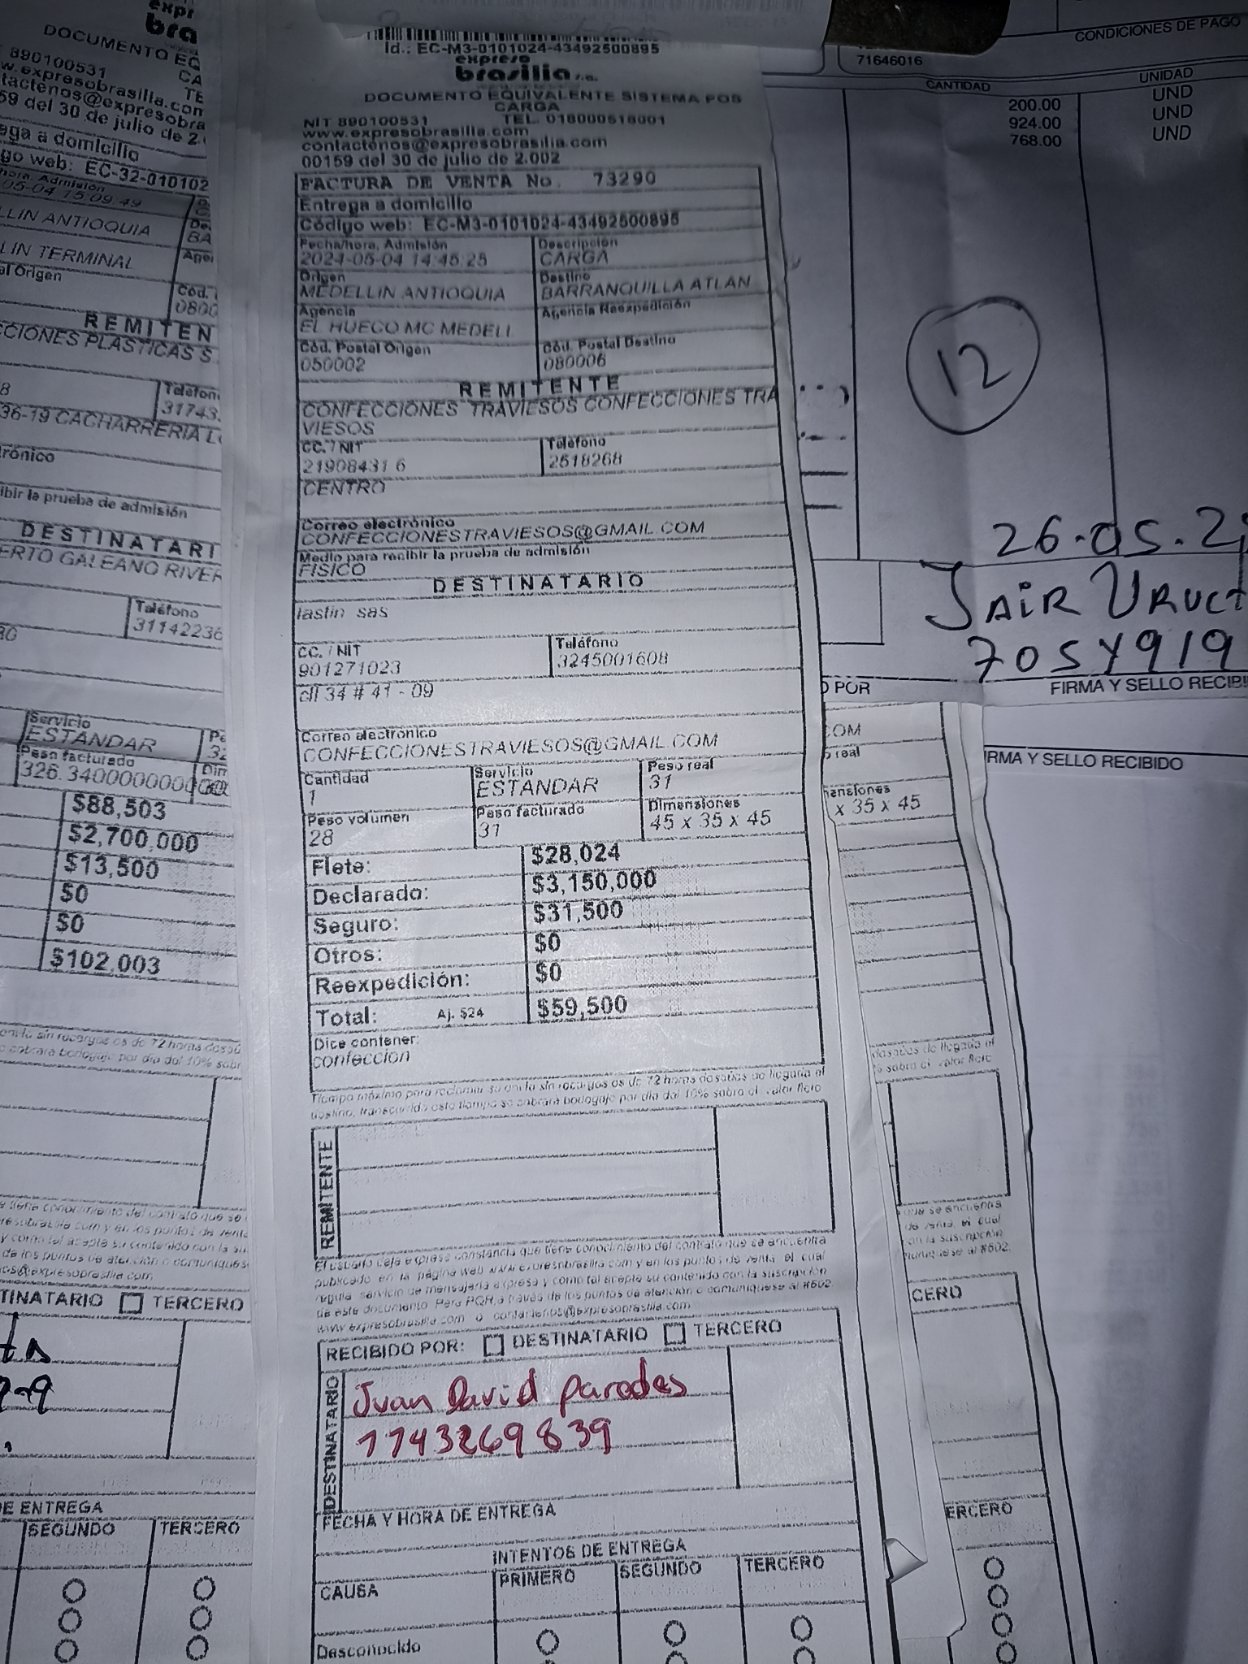 Id.: EC-M3-0101024-43492500895
expreso
brasilia s.a.
DOCUMENTO EQUIVALENTE SISTEMA POS
CARGA
NIT 890100531 TEL. 018000518001
www.expresobrasilia.com
contactenos@expresobrasilia.com
00159 del 30 de julio de 2.002
FACTURA DE VENTA No. 73290
Entrega a domicilio
Código web: EC-M3-0101024-43492500895
Fecha/hora, Admisión Descripción
2024-05-04 14:45:25 CARGA
Origen Destino
MEDELLIN ANTIOQUIA BARRANQUILLA ATLAN
Agencia Agencia Reexpedición
EL HUECO MC MEDELL
Cód. Postal Origen Cód. Postal Destino
050002 080006
REMITENTE
CONFECCIONES TRAVIESOS CONFECCIONES TRA
VIESOS
CC. / NIT Teléfono
21908431 6 2518268
CENTRO
Correo electrónico
CONFECCIONESTRAVIESOS@GMAIL.COM
Medio para recibir la prueba de admisión
FISICO
DESTINATARIO
lastin sas
CC. / NIT Teléfono
901271023 3245001608
cll 34 # 41 - 09
Correo electrónico
CONFECCIONESTRAVIESOS@GMAIL.COM
Cantidad Servicio Peso real
1 ESTANDAR 31
Peso volumen Peso facturado Dimensiones
28 31 45 x 35 x 45
Flete: $28,024
Declarado: $3,150,000
Seguro: $31,500
Otros: $0
Reexpedición: $0
Total: Aj. $24 $59,500
Dice contener:
confeccion
Tiempo máximo para reclamar su envío sin recargos es de 72 horas después de llegada al
destino, transcurrido este tiempo se cobrara bodegaje por día del 10% sobre el valor flete
REMITENTE
El usuario deja expresa constancia que tiene conocimiento del contrato que se encuentra
publicado en la página web www.expresobrasilia.com y en los puntos de venta, el cual
regula servicio de mensajería expresa y como tal acepta su contenido con la suscripción
de este documento. Para PQR, a través de los puntos de atención o comuníquese al #502.
www.expresobrasilia.com o contactenos@expresobrasilia.com
RECIBIDO POR: DESTINATARIO TERCERO
DESTINATARIO
Juan David Paredes
1143269839
FECHA Y HORA DE ENTREGA
INTENTOS DE ENTREGA
CAUSA PRIMERO SEGUNDO TERCERO
Desconocido
bra
DOCUMENTO EQ
890100531
w.expresobrasilia.com
tactenos@expresobra
59 del 30 de julio de 2
ega a domicilio
go web: EC-32-010102
05-04 15:09:49
LLIN ANTIOQUIA
LIN TERMINAL
al Origen
Cód.
0800
REMITEN
CCIONES PLASTICAS S
8 Teléfon
31743
36-19 CACHARRERIA L
rónico
ibir la prueba de admisión
DESTINATARI
ERTO GALEANO RIVER
Teléfono
31142236
Servicio
ESTANDAR
Peso facturado
326.3400000000
$88,503
$2,700,000
$13,500
$0
$0
$102,003
TINATARIO TERCERO
E ENTREGA
SEGUNDO TERCERO
CONDICIONES DE PAGO
71646016
CANTIDAD UNIDAD
200.00 UND
924.00 UND
768.00 UND
12
26-05-2
JAIR
7054919
POR
FIRMA Y SELLO RECIBI
RMA Y SELLO RECIBIDO
COM
real
x 35 x 45
CERO
ERCERO